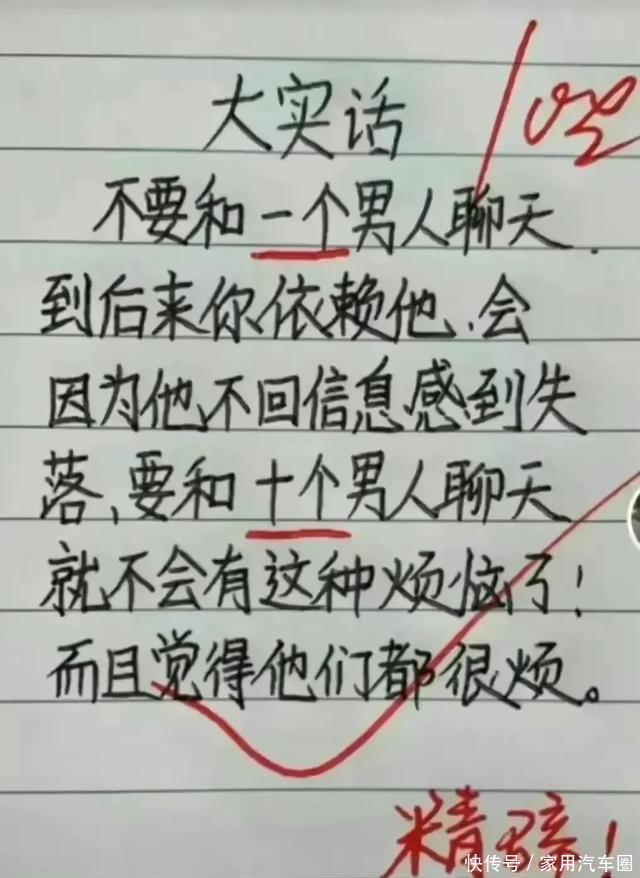 大实话
不要和一个男人聊天
到后来你依赖他、会
因为他不回信息感到失
落、要和十个男人聊天
就不会有这种烦恼了！
而且觉得他们都很烦。
精辟！
快传号/家用汽车圈